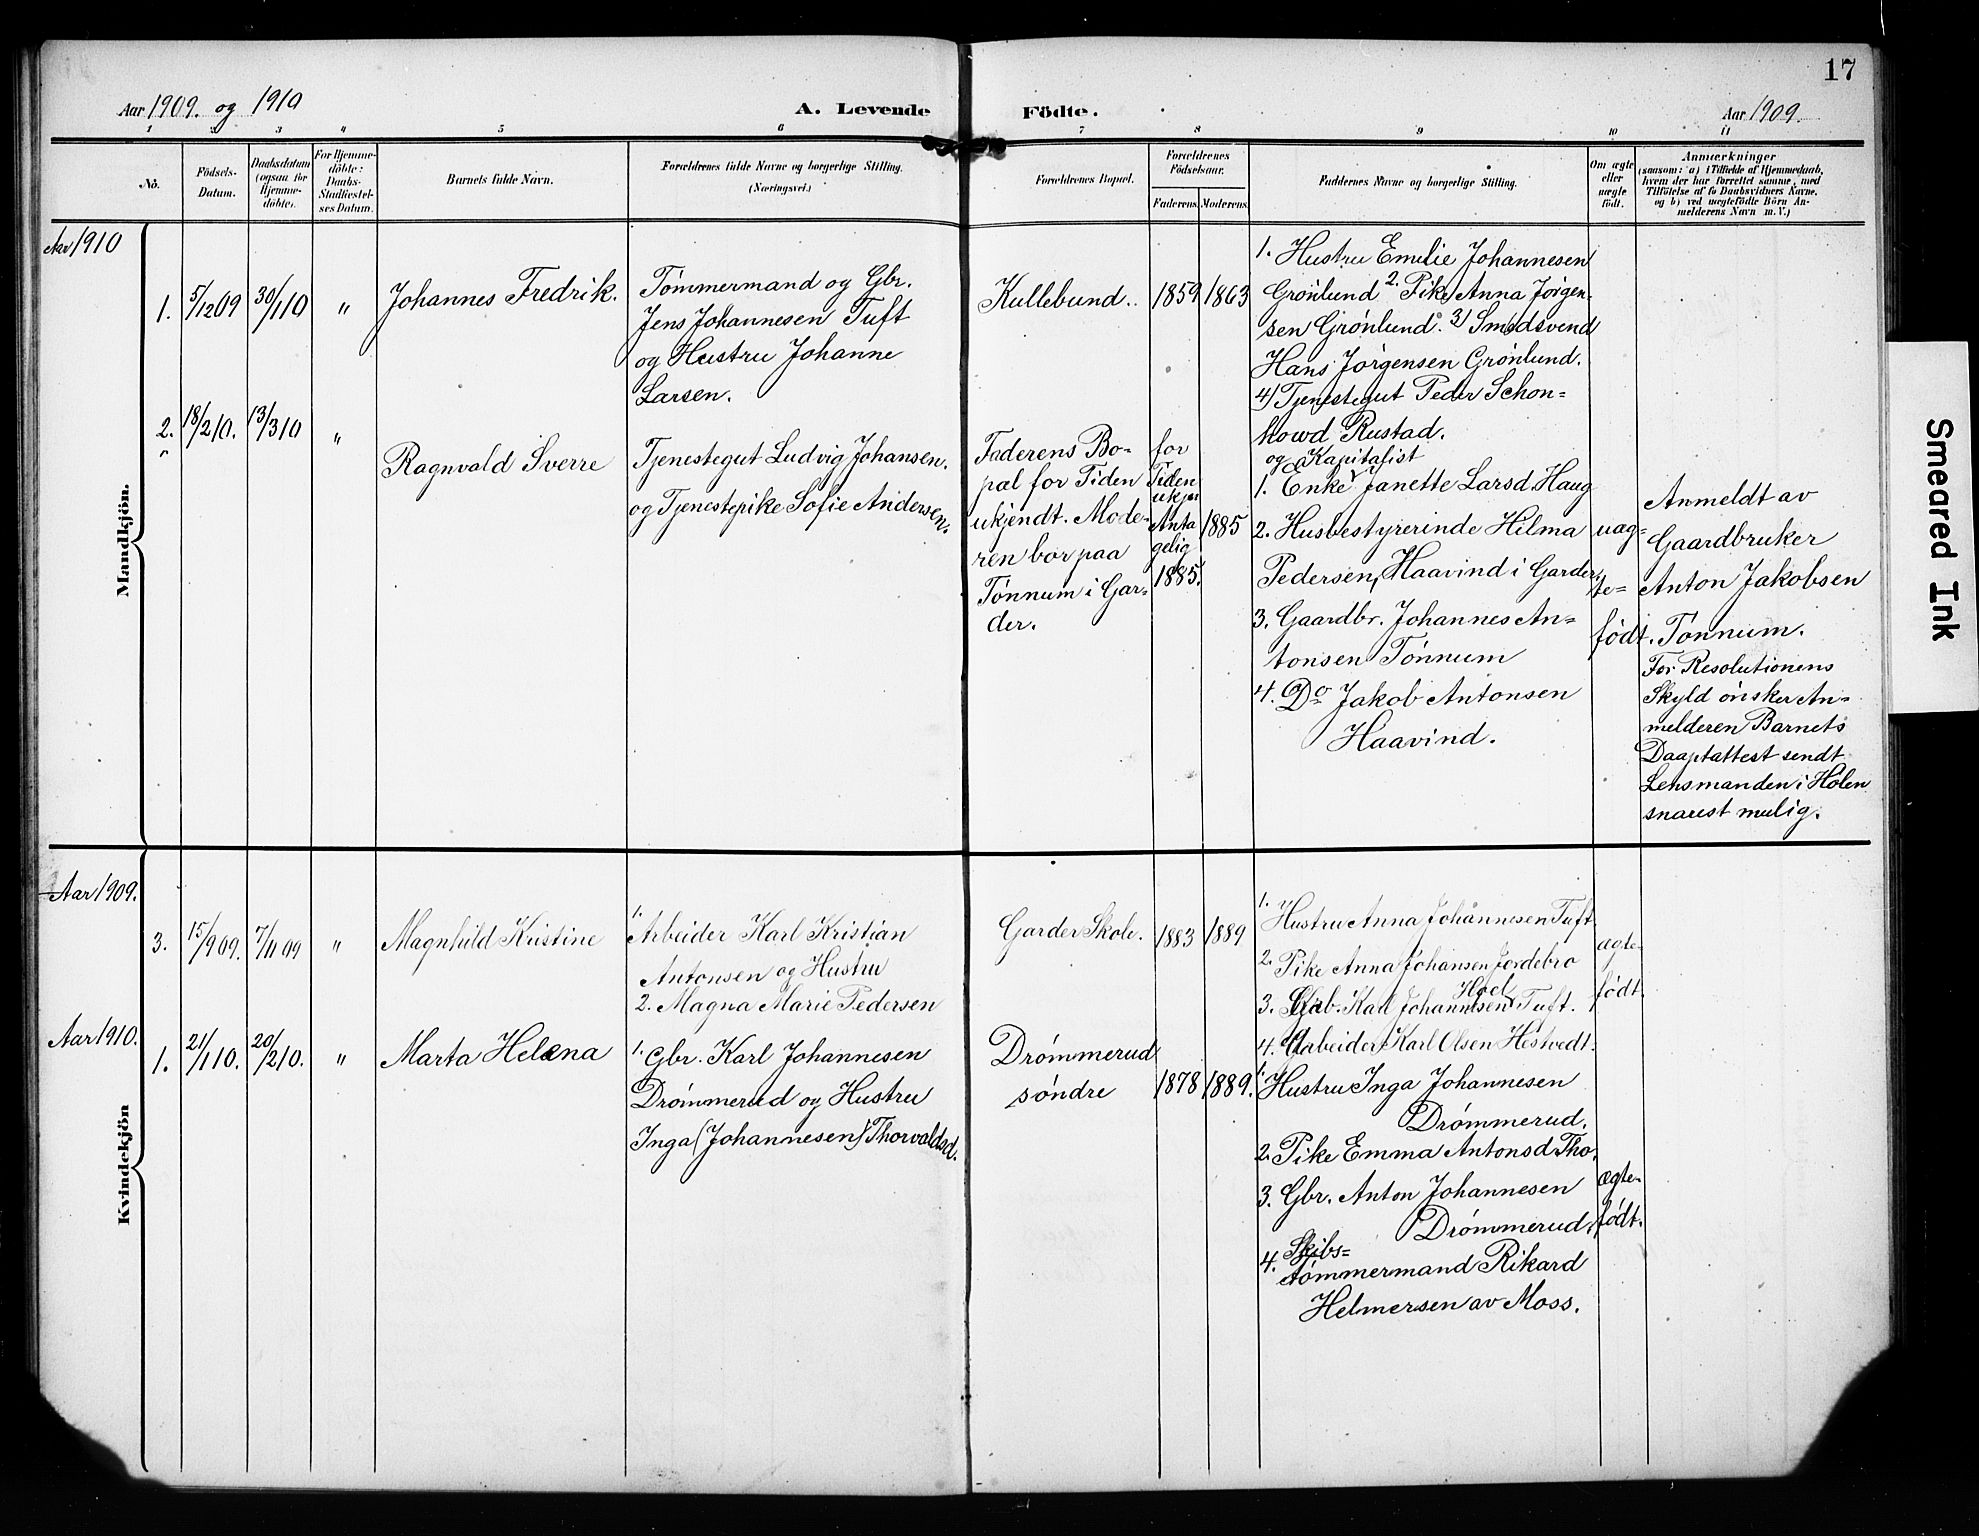 17
Aar 1909. og 1910
A. Levende
Födte.
Aar 1909.
1 2 3 4 5 6 7 8 9 10 11
No.
Födsels-
Datum.
Daabsdatum
(ogsaa for
Hjemme-
döbte).
For Hjemme-
döbte:
Daabs-
Stadfæstel-
ses Datum.
Barnets fulde Navn.
Forældrenes fulde Navne og borgerlige Stilling.
(Næringsvei.)
Forældrenes Bopæl.
Forældrenes
Födselsaar.
Faderens.
Moderens.
Faddernes Navne og borgerlige Stilling.
Om ægte
eller
uægte
födt.
Anmærkninger
(saasom: a) i Tilfælde af Hjemmedaab,
hvem der har forrettet samme, med
Tilföielse af to Daabsvidners Navne,
og b) ved uægtefödte Börn An-
melderens Navn m. V.)
Mandkjön.
Aar 1910
1.
5/12 09
30/1 10
"
Johannes Fredrik.
Tømmermand og Gbr.
Jens Johannesen Tuft
og Hustru Johanne
Larsen.
Kullebund.
1859
1863
1. Hustru Emilie Johannesen
Grønlund 2. Pike Anna Jørgen=
sen Grønlund. 3) Smedsvend
Hans Jørgensen Grønlund.
4) Tjenestegut Peder Schon=
howd Rustad.
2.
18/2 10.
13/3 10
"
Ragnvald Sverre
Tjenestegut Ludvig Johansen.
og Tjenestepike Sofie Andersen.
Faderens Bo-
pæl for Tiden
ukjendt. Mode-
ren bor paa
Tønnum i Gar-
der.
for
Tiden
ukjen
Anta
gelig
1885.
1885
og Kapitalist
1. Enke Janette Larsd. Haug
2. Husbestyrerinde Hilma
Pedersen, Haavind i Garder
3. Gaardbr. Johannes An=
tonsen Tønnum
4. Do Jakob Antonsen
Haavind.
uæg-
te=
født.
Anmeldt av
Gaardbruker
Anton Jakobsen
Tønnum.
For Resolutionens
Skyld ønsker An=
melderen Barnets
Daaptattest sendt
Lensmanden i Hølen
snarest mulig.
Kvindekjön
Aar 1909.
3.
15/9 09.
7/11 09
"
Magnhild Kristine
1.
Arbeider Karl Kristian
Antonsen og Hustru
2. Magna Marie Pedersen
Garder Skole.
1883
1889
1.
Hustru Anna Johannesen Tuft
2. Pike Anna Johansen Jordebro
Hoel
3. Grb. Karl Johannesen Tuft.
4. Arbeider Karl Olsen Hestvedt.
ægte-
født.
Aar 1910.
1.
21/1 10.
20/2 10.
"
Marta Helena
1. Gbr. Karl Johannesen
Drømmerud og Hustru
Inga (Johannesen) Thorvaldsd.
Drømmerud
søndre
1878
1889.
1.
Hustru Inga Johannesen
Drømmerud.
2. Pike Emma Antonsd Tho.
3. Gbr. Anton Johannesen
Drømmerud,
4. Skibs=
tømmermand Rikard
Helmersen av Moss.
ægte-
født.
Smeared Ink